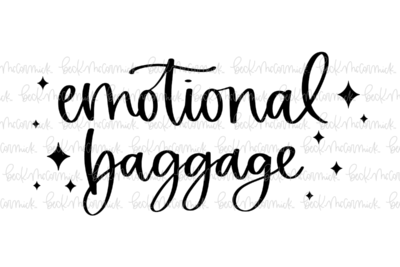 emotional
baggage